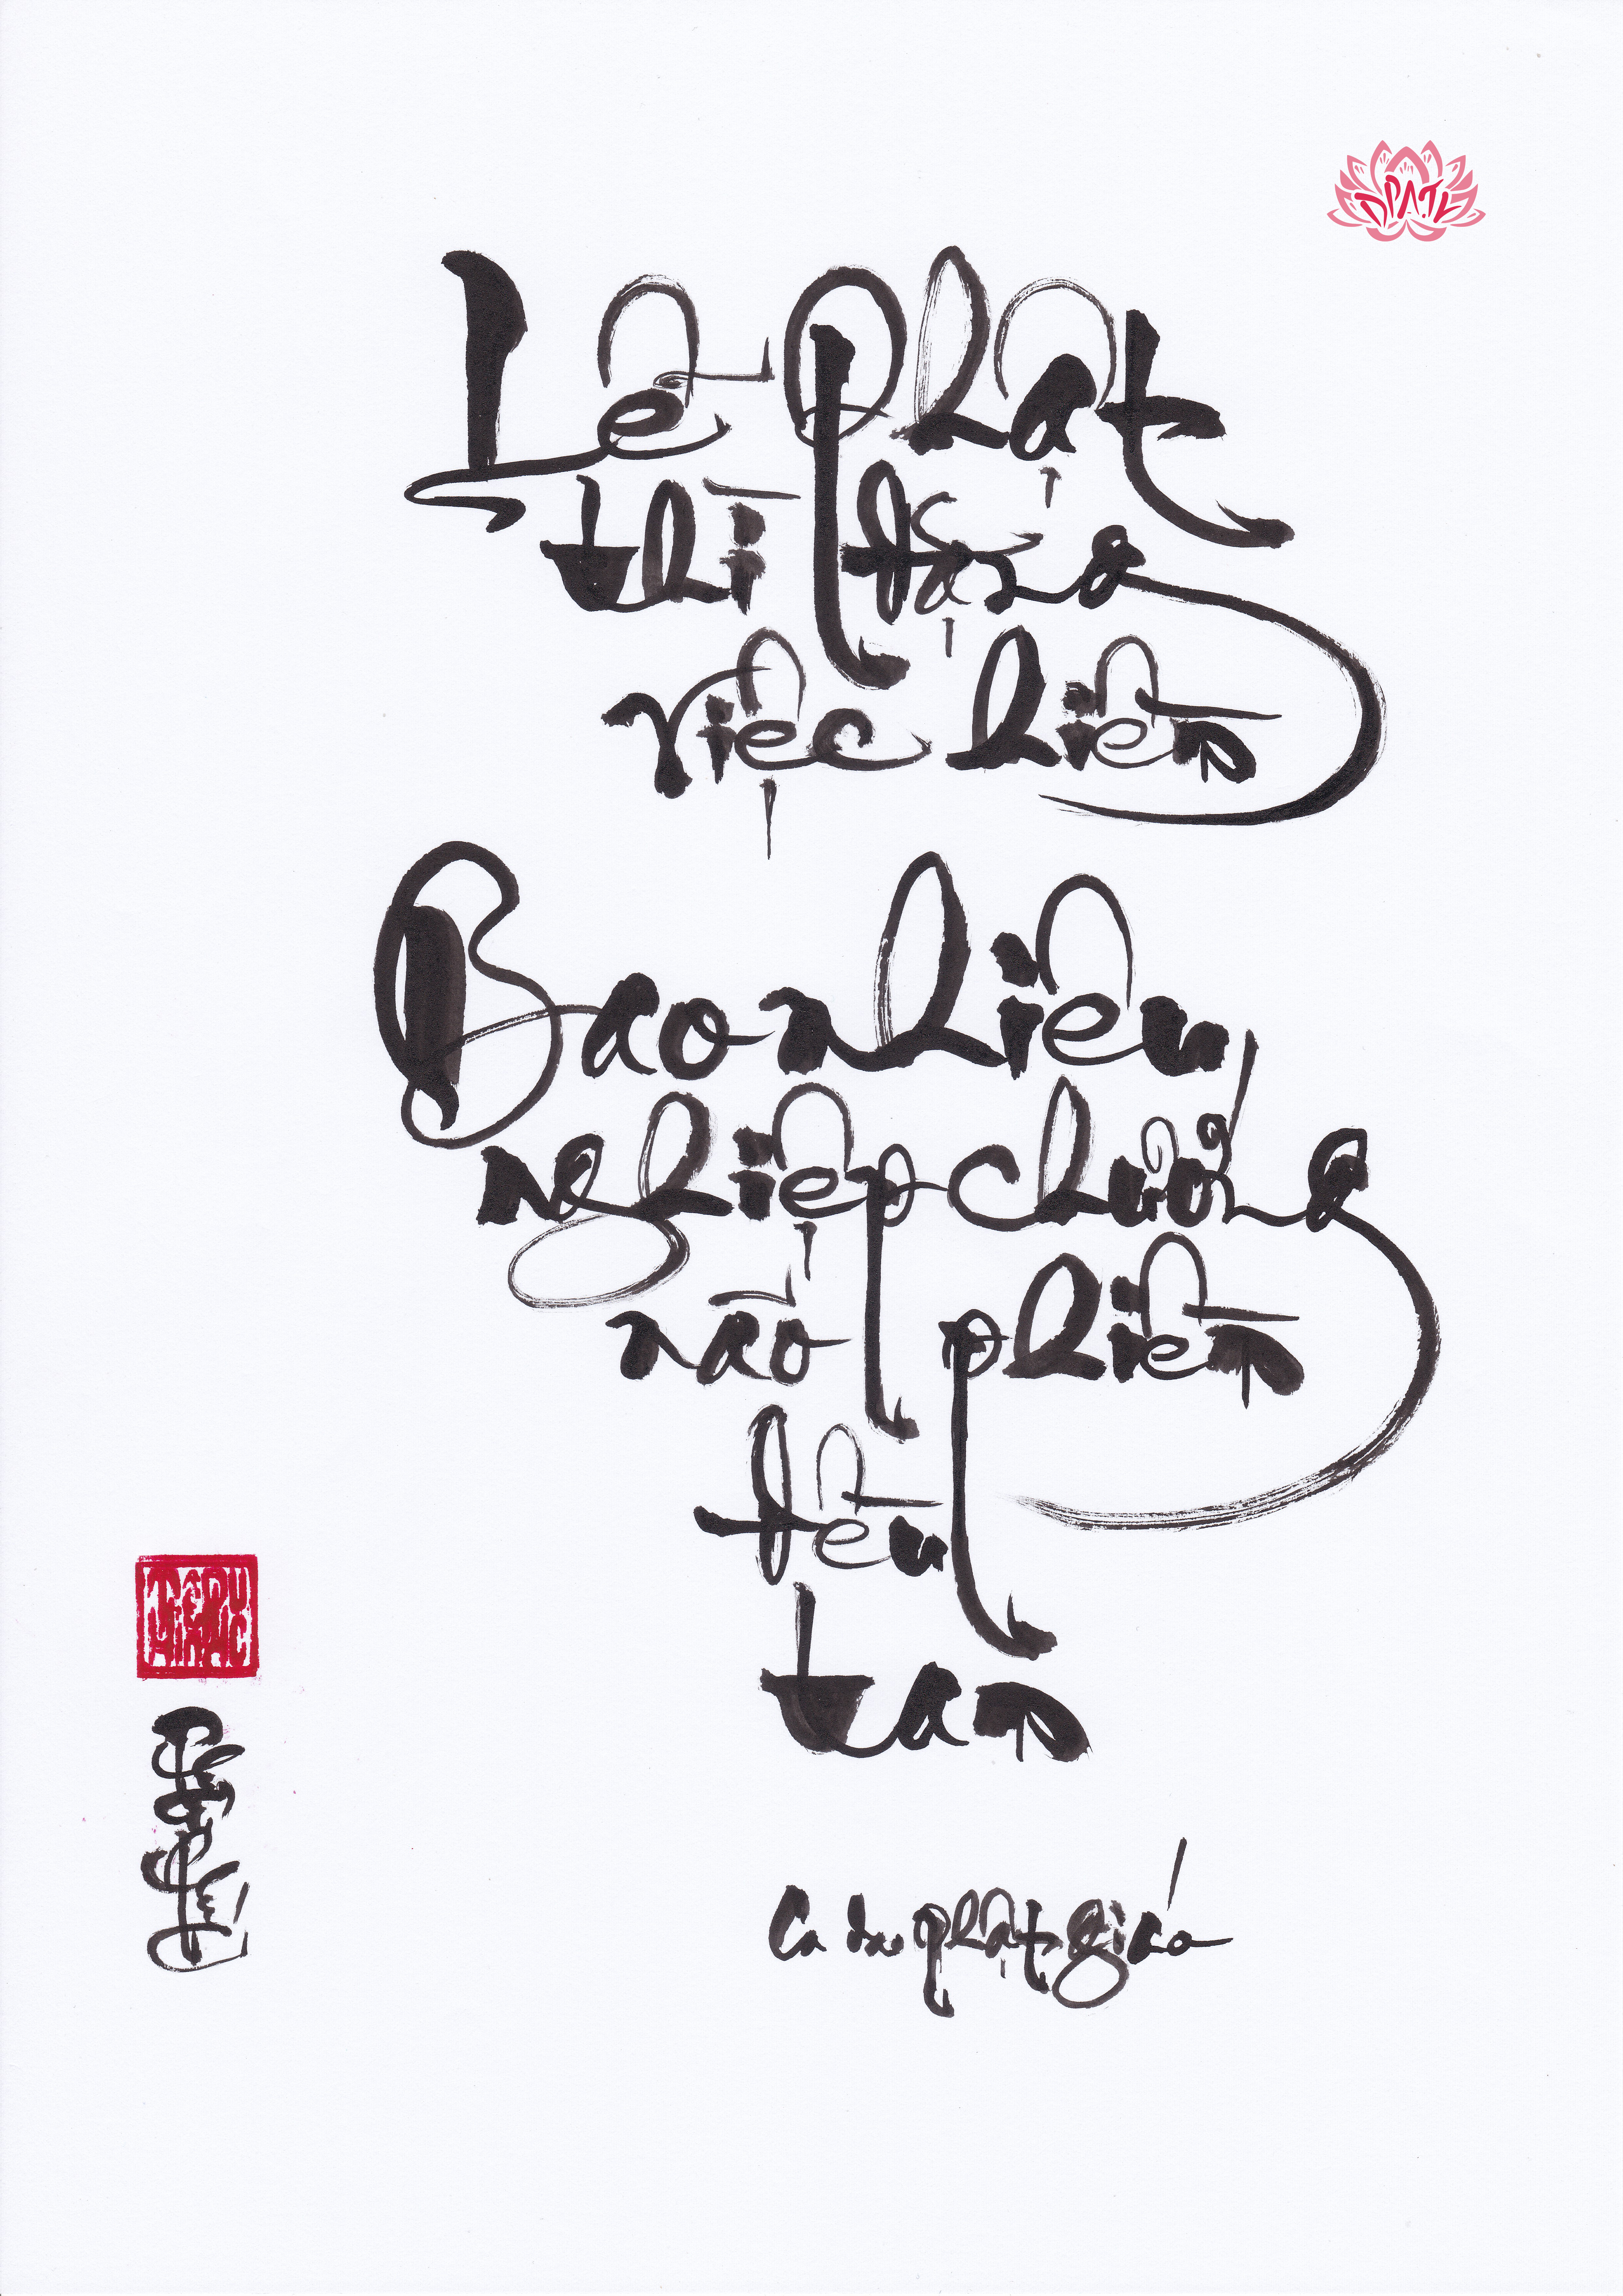 ĐPATV
Lễ Phật
thì đặng
việc hiền
Bao nhiêu
nghiệp chướng
não phiền
đều
tan
Ca dao phật giáo